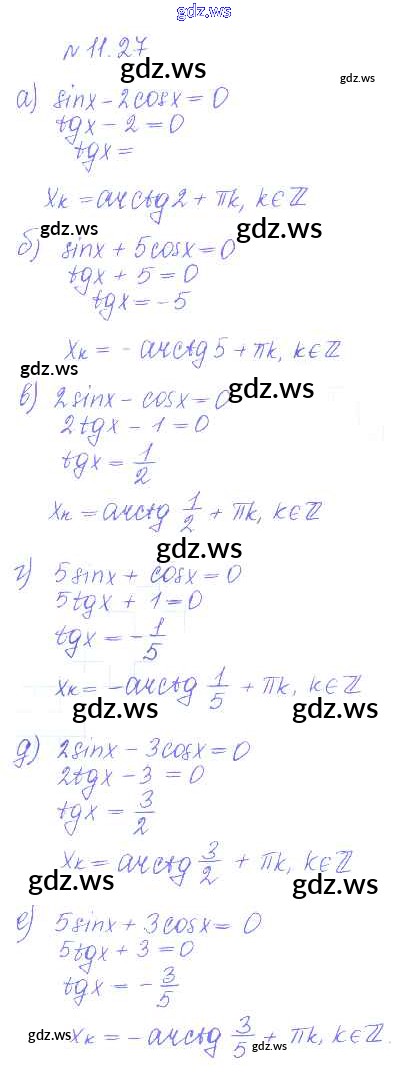 gdz.ws
№ 11.27
gdz.ws
gdz.ws
а) sinx - 2cosx = 0
tgx - 2 = 0
tgx =
xₖ = arctg 2 + πk, k∈ℤ
gdz.ws
gdz.ws
б) sinx + 5cosx = 0
tgx + 5 = 0
tgx = -5
xₖ = - arctg 5 + πk, k∈ℤ
gdz.ws
gdz.ws
в) 2sinx - cosx = 0
2tgx - 1 = 0
tgx = 1/2
xₖ = arctg 1/2 + πk, k∈ℤ
gdz.ws
г) 5sinx + cosx = 0
5tgx + 1 = 0
tgx = - 1/5
xₖ = -arctg 1/5 + πk, k∈ℤ
gdz.ws
gdz.ws
д) 2sinx - 3cosx = 0
2tgx - 3 = 0
tgx = 3/2
xₖ = arctg 3/2 + πk, k∈ℤ
gdz.ws
gdz.ws
е) 5sinx + 3cosx = 0
5tgx + 3 = 0
tgx = - 3/5
xₖ = - arctg 3/5 + πk, k∈ℤ.
gdz.ws
gdz.ws